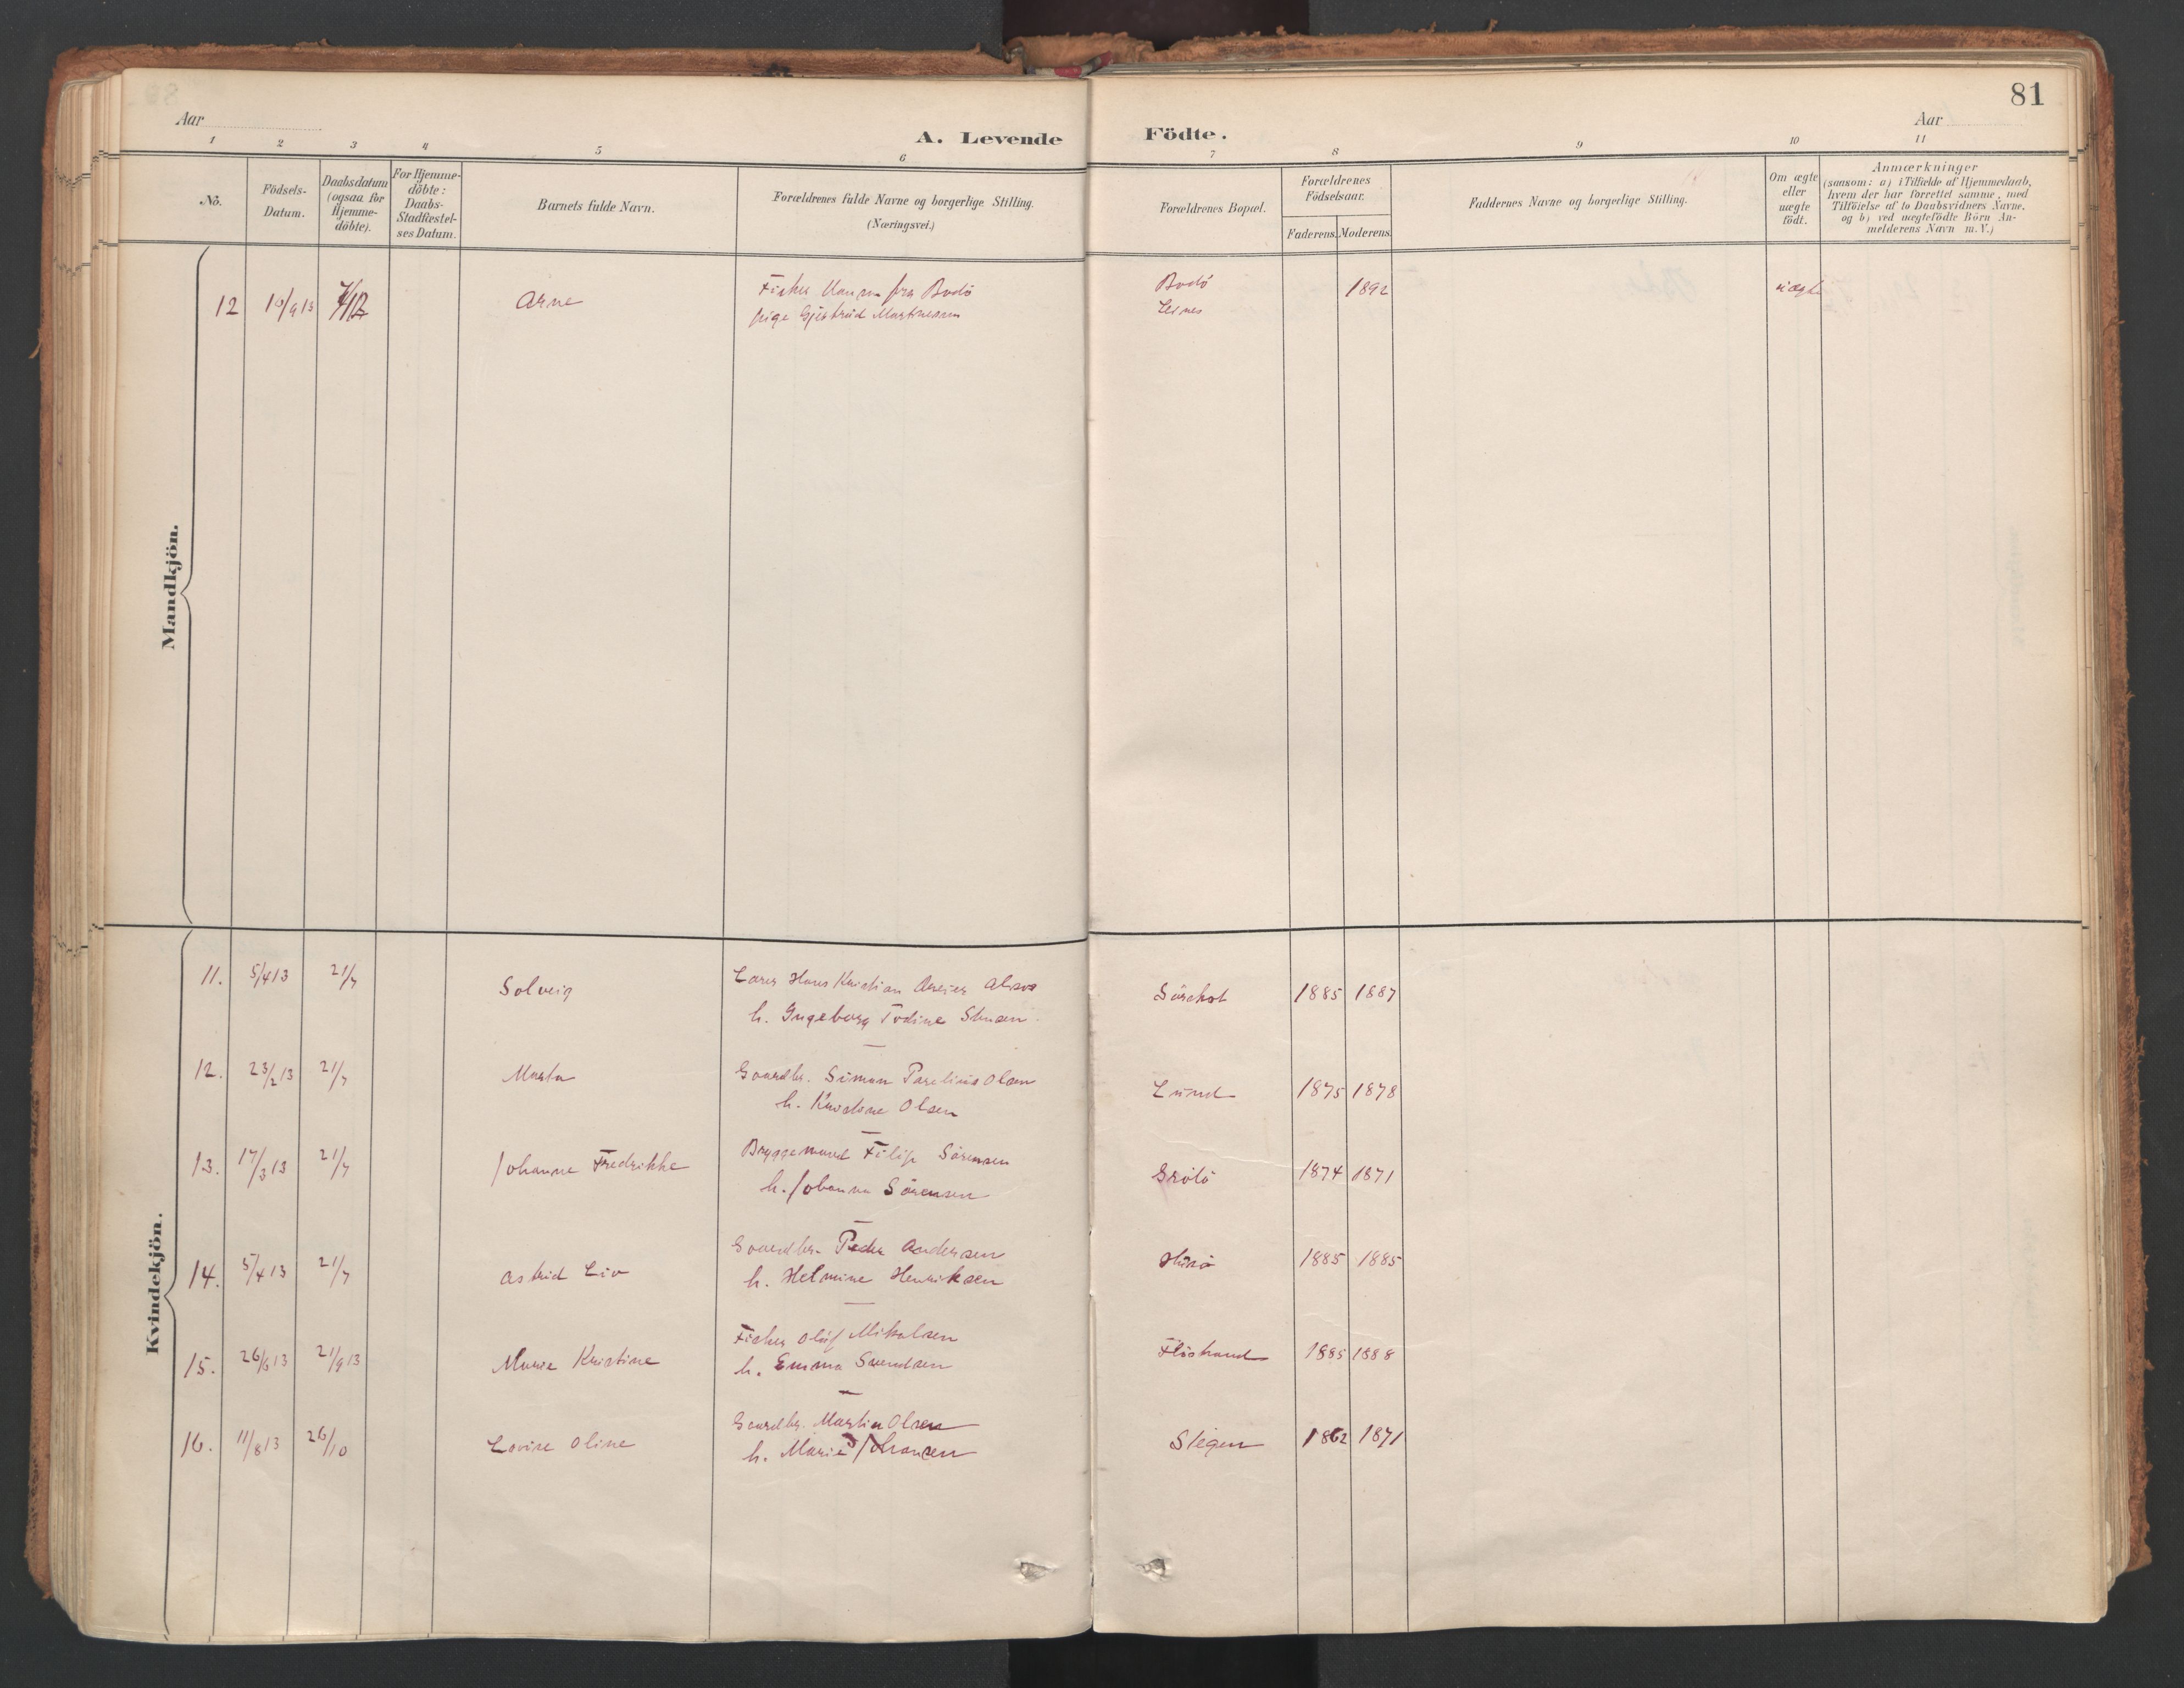 81
Aar
Aar
A. Levende Födte.
1 2 3 4 5 6 7 8 9 10 11
No.
Födsels-
Datum.
Daabsdatum
(ogsaa for
Hjemme-
döbte).
For Hjemme-
döbte:
Daabs-
Stadfæstel-
ses Datum.
Barnets fulde Navn.
Forældrenes fulde Navne og borgerlige Stilling.
(Næringsvei.)
Forældrenes Bopæl.
Forældrenes
Födselsaar.
Faderens. Moderens.
Faddernes Navne og borgerlige Stilling.
Om ægte
eller
uægte
födt.
Anmærkninger
(saasom: a) i Tilfælde af Hjemmedaab,
hvem der har forrettet samme, med
Tilföielse af to Daabsvidners Navne.
og b) ved uægtefödte Börn An-
melderens Navn m.V.)
Mandkjön.
12 10/9 13 Arne
Fisker fra Bodö Bodö 1892 uægte
pige Martinsen
Kvindekjön.
11. 5/4 13 21/7 Solveig
Lærer Hans Kristian Olsen 1885 1887
h. Ingeborg
12. 23/2 13 21/7 Marta
Gaardbr. Simon Parelius Olsen Lund 1875 1878
h. Kristine Olsen
13. 17/3 13 21/7 Johanne Fredrikke
Bryggemand Filip Sörensen Grötö 1874 1871
h. Johanna Sörensen
14. 5/4 13 21/7 Astrid Liv
Gaardbr. Peder Andersen Husö 1885 1885
h. Helmine Henriksen
15. 26/6 13 21/9 13 Marie Kristine
Fisker Oluf Mikalsen 1885 1888
h. Emma Svendsen
16. 11/8 13 26/10 Lovise Oline
Gaardbr. Martin Olsen Stegen 1862 1871
h. Marie Johansen